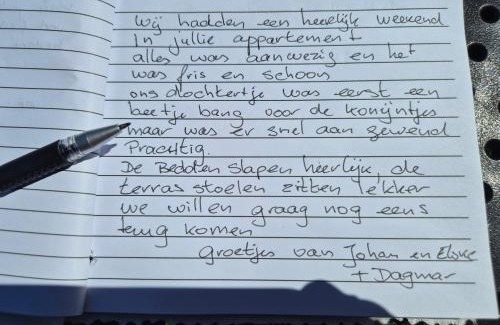 Wij hadden een heerlijk weekend
In jullie appartement
alles was aanwezig en het
was fris en schoon
ons dochtertje was eerst een
beetje bang voor de konijntjes
maar was er snel aan gewend
Prachtig.
De Bedden slapen heerlijk, de
terras stoelen zitten lekker
we willen graag nog eens
terug komen
groetjes van Johan en
+ Dagmar